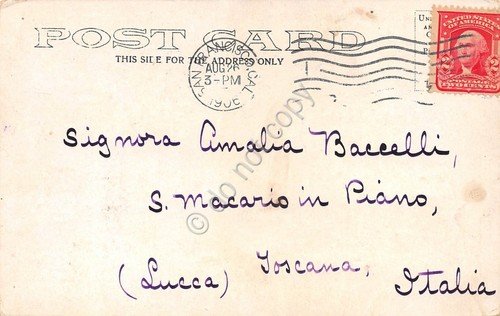 POST CARD
THIS SIDE FOR THE ADDRESS ONLY
SAN FRANCISCO, CAL.
AUG 26
3-PM
1906
UNITED STATES OF AMERICA
TWO CENTS
Signora Amalia Baccelli,
S. Macario in Piano,
(Lucca) Toscana,
Italia
© do not copy